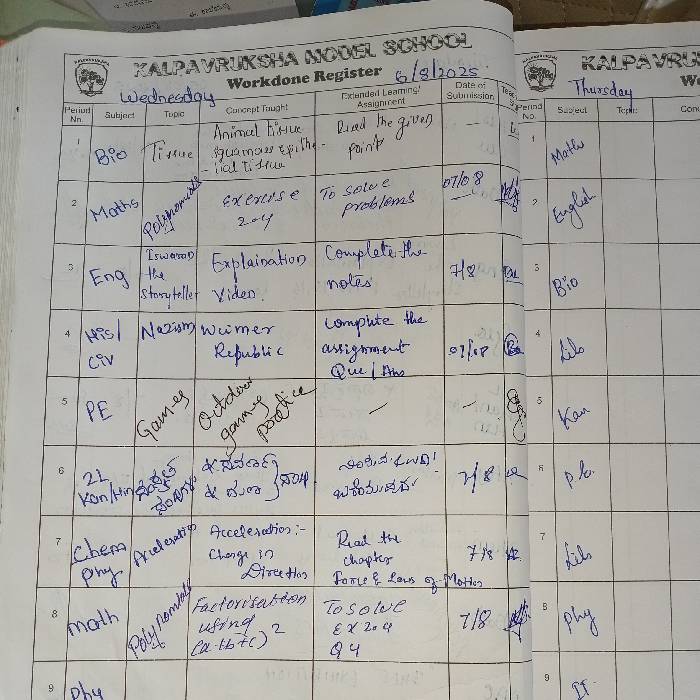 KALPAVRUKSHA MODEL SCHOOL
Workdone Register 6/8/2025
Wednesday
Period No. Subject Topic Concept Taught Extended Learning/ Assignment Date of Submission
1 Bio Tissue Animal tissue Read the given
squamous epithe- point
-lial tissue
2 Maths Polynomials Exercise To solve 07/08
2.4 problems
3 Eng Iswaran Explaination Complete the 7/8
the Video. notes
Storyteller
4 His/ Nazism Weimer Complete the 07/08
Civ Republic assignment
Que/Ans
5 PE Games Outdoor – –
games
practice
6 2L 7/8
Kan/Hin
7 Chem Acceleration Acceleration:- Read the 7/8
Phy Change in chapter
Direction Force & Laws of Motion
8 Math Polynomials Factorisation To solve 7/8
using EX 2.4
(a+b+c)2 Q4
9 Phy
KALPAVRU
Thursday
Period No. Subject Topic Conc
1 Maths
2 English
3 Bio
4 Lib
5 Kan
6
7 Lib
8 Phy
9 IT